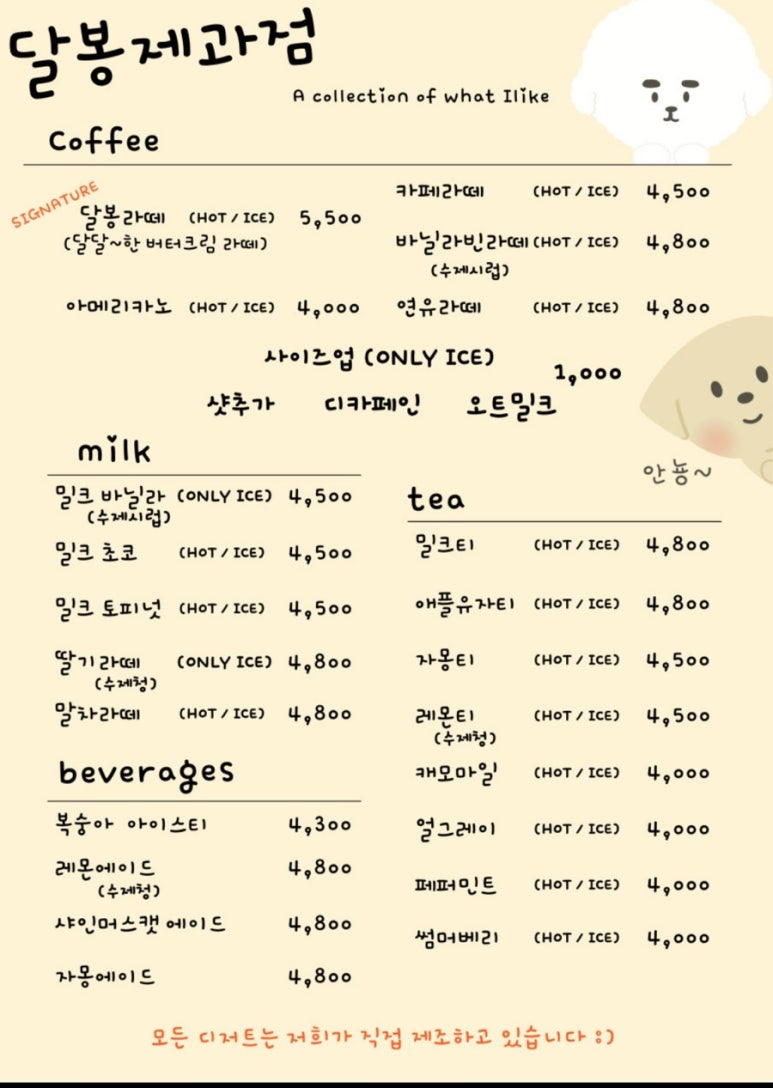 달봉제과점
A collection of what Ilike
coffee
SIGNATURE
달봉라떼 (HOT / ICE) 5,500
(달달~한 버터크림 라떼)
아메리카노 (HOT / ICE) 4,000
카페라떼 (HOT / ICE) 4,500
바닐라빈라떼 (HOT / ICE) 4,800
(수제시럽)
연유라떼 (HOT / ICE) 4,800
사이즈업 (ONLY ICE)
샷추가 디카페인 오트밀크
1,000
안뇽~
milk
밀크 바닐라 (ONLY ICE) 4,500
(수제시럽)
밀크 초코 (HOT / ICE) 4,500
밀크 토피넛 (HOT / ICE) 4,500
딸기라떼 (ONLY ICE) 4,800
(수제청)
말차라떼 (HOT / ICE) 4,800
beverages
복숭아 아이스티 4,300
레몬에이드 4,800
(수제청)
샤인머스캣 에이드 4,800
자몽에이드 4,800
tea
밀크티 (HOT / ICE) 4,800
애플유자티 (HOT / ICE) 4,800
자몽티 (HOT / ICE) 4,500
레몬티 (HOT / ICE) 4,500
(수제청)
캐모마일 (HOT / ICE) 4,000
얼그레이 (HOT / ICE) 4,000
페퍼민트 (HOT / ICE) 4,000
썸머베리 (HOT / ICE) 4,000
모든 디저트는 저희가 직접 제조하고 있습니다 :)